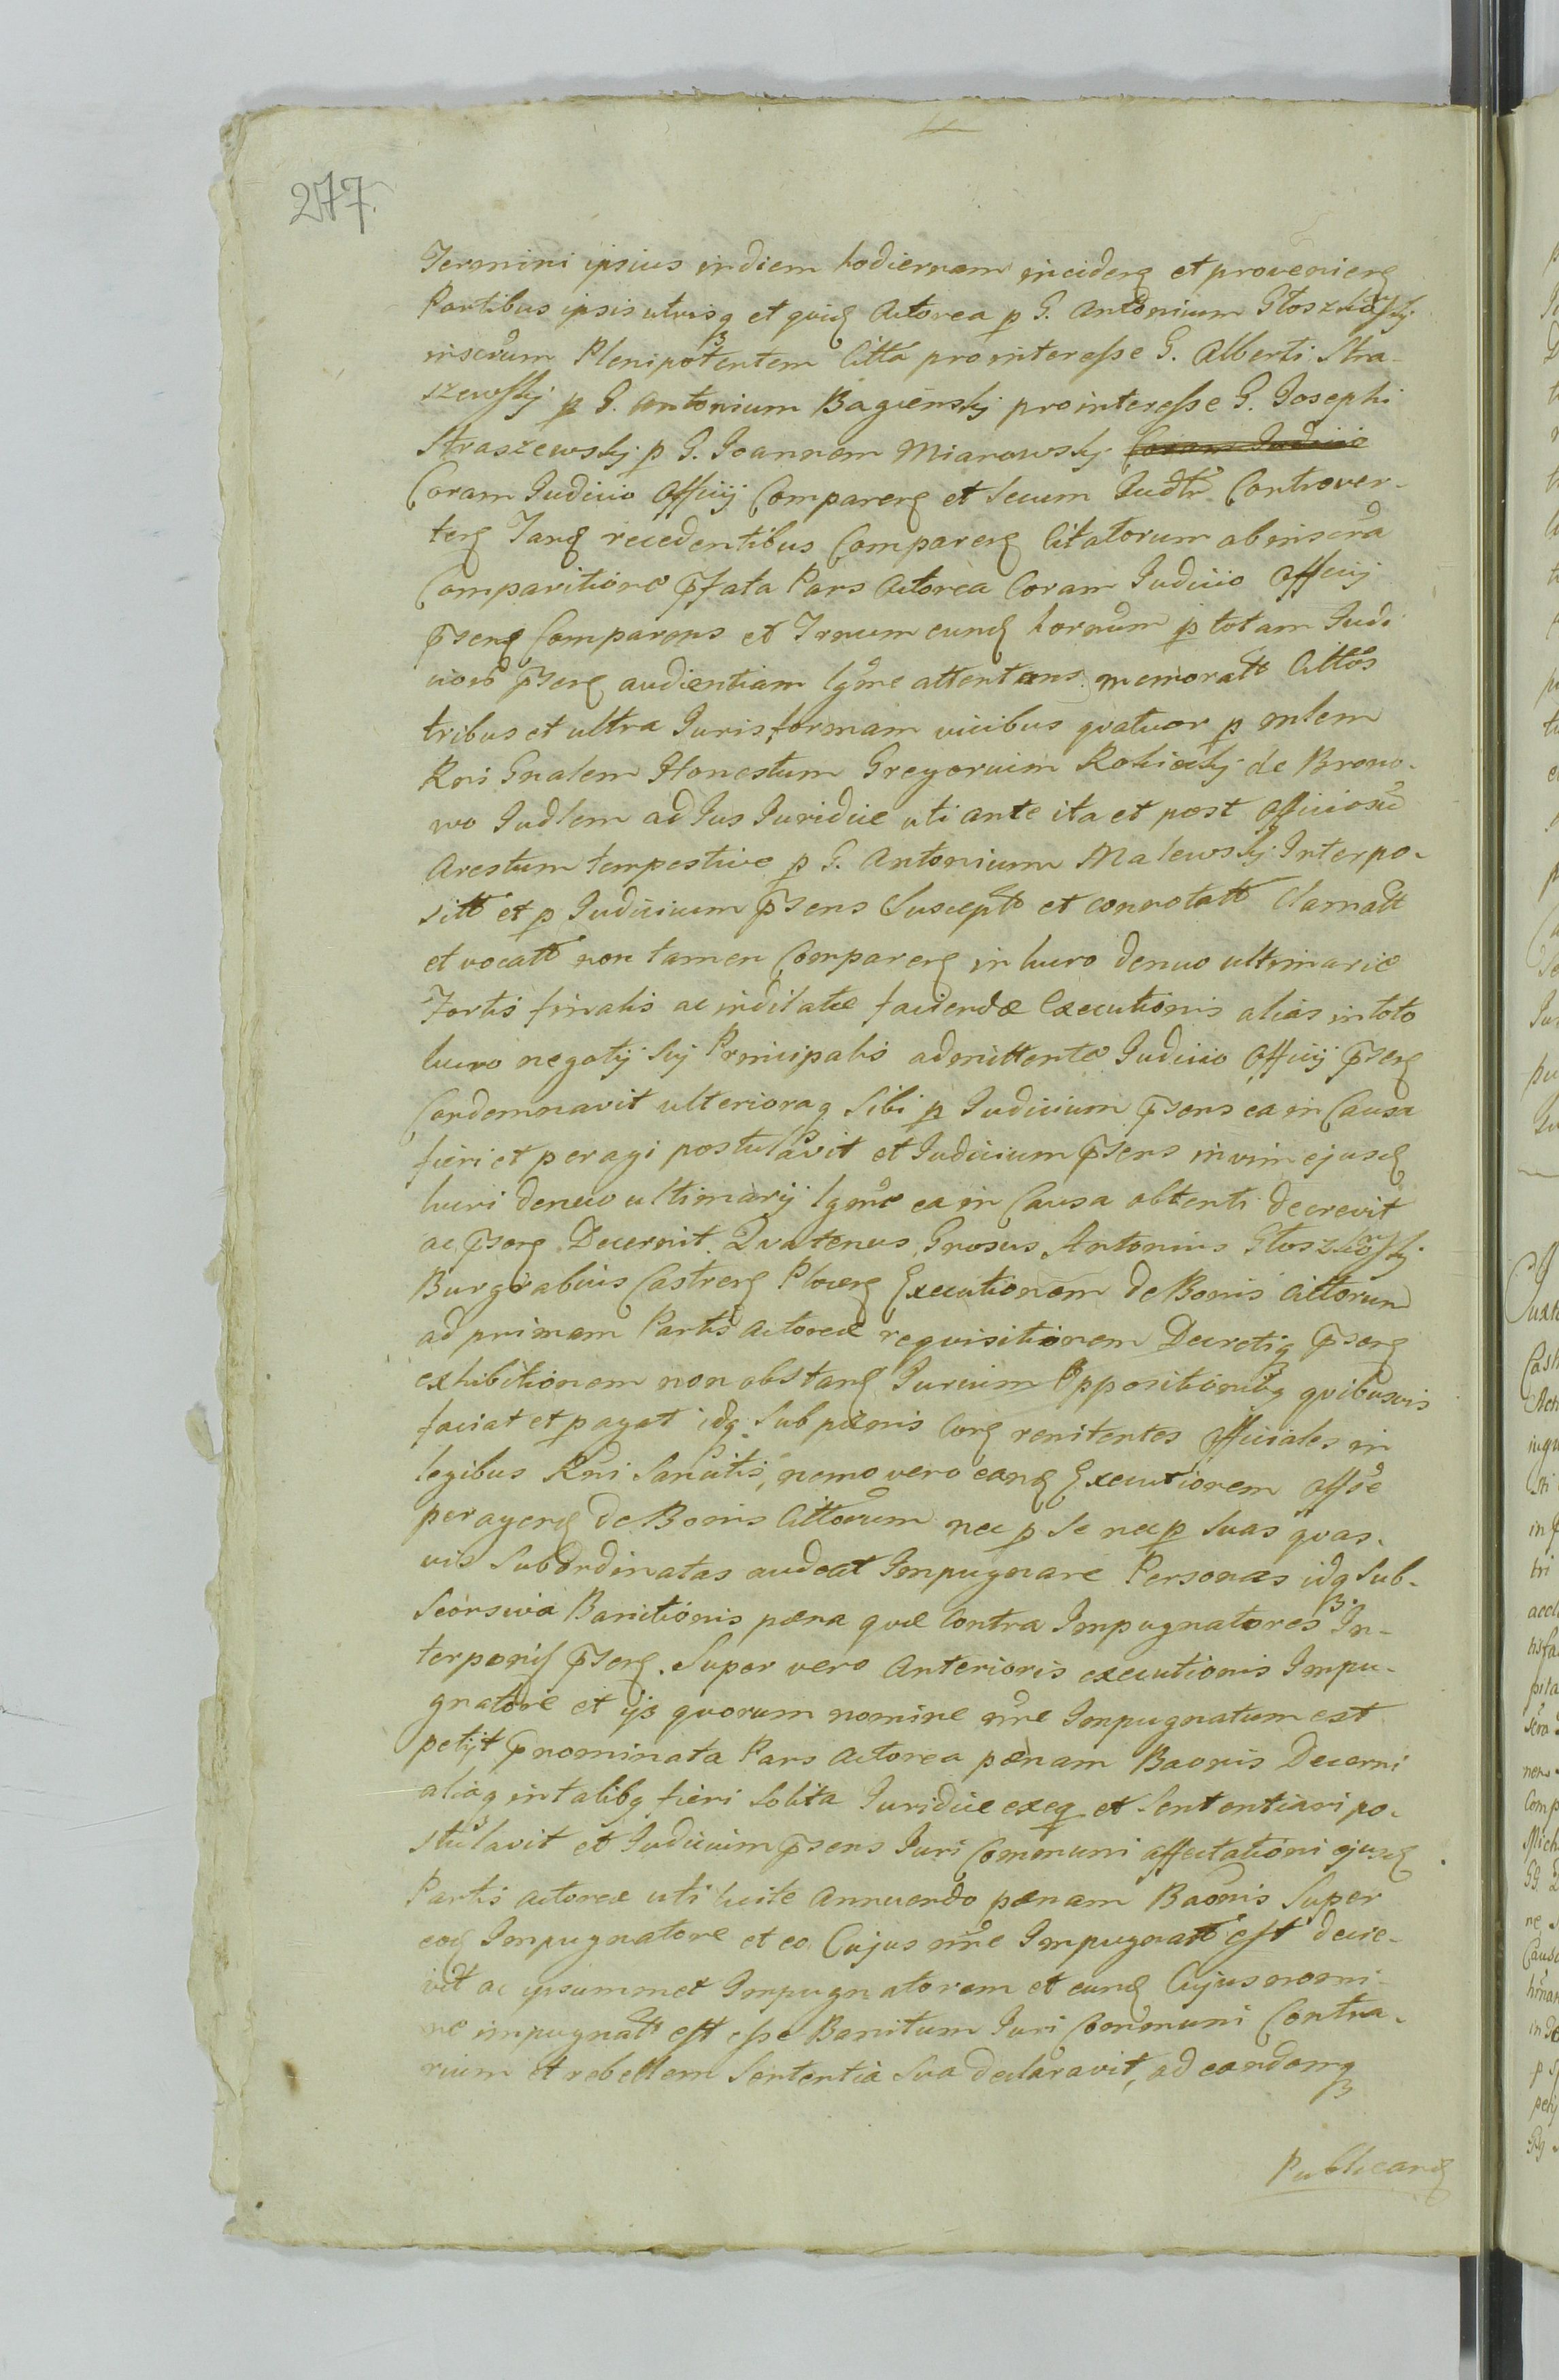 277.
Termini ipsius in diem hodiernam inciden et provenien
Partibus ipsis utrisq et quid Actorea p G. Antonium Głoszkoski
inscrum Plenipotentem Citta pro interesse G. Alberti Stra-
szewsky p G. Antonium Bagiensky pro interesse G. Josephi
Straszewsky p G. Joannem Mianowsky
Coram Judicio Officij Comparen et secum Judtr Controver-
ten Tand recedentibus Comparen Citatorum ab inscra
Comparitione pfata Pars Actorea Coram Judicio Officij
psenq Comparens et Trnum eund hornum p totam Judi
ciors psenq audientiam lgme attentans memoratt Cittos
tribus et ultra Juris formam vicibus quatuor p mlem
Rni Gnalem Honestum Gregorium Rokicky de Brono-
wo Judlem ad Jus Juridice uti ante ita et post officiosu
Arestum tempestive p G. Antonium Malewsky Interpo-
sitt et p Judicium psens Suscept et connotatt Clamatt
et vocatt non tamen Comparen in lucro denuo ultimarie
Fortis finalis ac indilatae faciendae Executionis alias in toto
lucro negotij sij Principalis admittente Judicio Officij psenq
Condemnavit ulterioraq Sibi p Judicium psens ea in Causa
fieri et peragi postulavit et Judicium psens in vim ejusd
lucri denuo ultimarij lgme ea in Causa obtenti decrevit
ac psenq Decernit. Quatenus Gnosus Antonius Głoszkosky
Burgrabius Castren Plocen Executionem de Bonis Cittorum
ad primam Partis Actoreae requisitionem Decretiq psenq
exhibitionem non obstan Jurium Oppositionibq quibusvis
faciat et pagat idq sub paenis Con renitentes Officiales in
legibus Rni Sancitis, nemo vero eand Executionem offse
peragend de Bonis Cittorum nec p se nec p suas quas-
vis Subordinatas audeat Impugnare Personas idq sub-
Seorsiva Banitionis paena quae Contra Impugnatores In-
terponis psenq. Super vero Anterioris executionis Impu-
gnatore et ijs quorum nomine nne Impugnatum est
petijt pnominata Pars Actorea paenam Baonis Decerni
aliaq in talibq fieri solita Juridice exeq et Sententiari po-
stulavit et Judicium psens Juri Communi affectationi ejusd
Partis Actoreae uti licite Annuendo paenam Baonis Super
eod Impugnatore et eo Cujus nne Impugnatt est decre-
vit ac ipsummet Impugnatorem et eund Cujus nomi-
ne impugnatt est esse Banitum Juri Communi Contra-
rium et rebellem Sententia sua declaravit, ad eandamq
Publicand